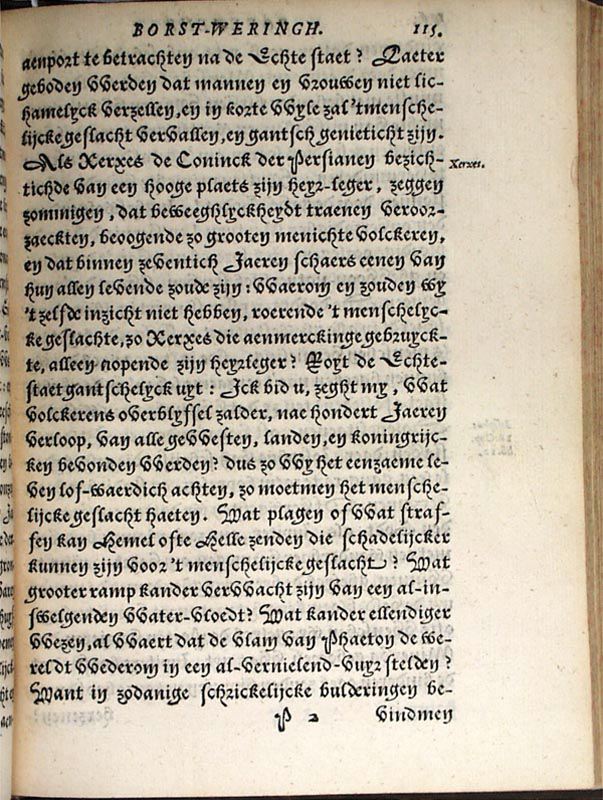 BORST-WERINGH. 115.
aenport te betrachten na de Echte staet? Laeter
geboden VVerden dat mannen en Vrouwen niet lic-
hamelyck Verzellen, en in korte VVyle zal 'tmensche-
lijcke geslacht VerVallen, en gantsch genieticht zijn.
Als Xerxes de Coninck der Persianen bezich-
Xerxes.
tichde Van een hooge plaets zijn heyr-leger, zeggen
zommigen, dat beWeeghlyckheydt traenen Veroor-
zaeckten, beoogende zo grooten menichte Volckeren,
en dat binnen zeVentich Jaeren schaers eenen Van
hun allen leVende zoude zijn: VVaerom en zouden wy
't zelfde inzicht niet hebben, roerende 't menschelyc-
ke geslachte, zo Xerxes die aenmerckinge gebruyck-
te, alleen nopende zijn heyrleger? Royt de Echte-
staet gantschelyck uyt: Ick bid u, zeght my, VVat
Volckerens oVerblyfsel zalder, nae hondert Jaeren
Verloop, Van alle geVVesten, landen, en koningrijc-
ken beVonden VVerden? dus zo VVy het eenzaeme le-
Ven lof-waerdich achten, zo moetmen het mensche-
lijcke geslacht haeten. Wat plagen of VVat straf-
fen kan Hemel ofte Helle zenden die schadelijcker
kunnen zijn Voor 't menschelijcke geslacht? Wat
grooter ramp kander VerVVacht zijn Van een al-in-
swelgenden VVater-Vloedt? Wat kander ellendiger
VVezen, al VVaert dat de Vlam Van Phaeton de we-
reldt VVederom in een al-Vernielend-Vuyr stelden?
Want in zodanige schrickelijcke bulderingen be-
P 2 Vindmen